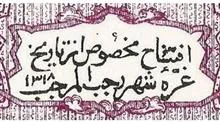 افتتاح مخصوص از تاریخ
غره شهر رجب المرجب ۱۳۱۸